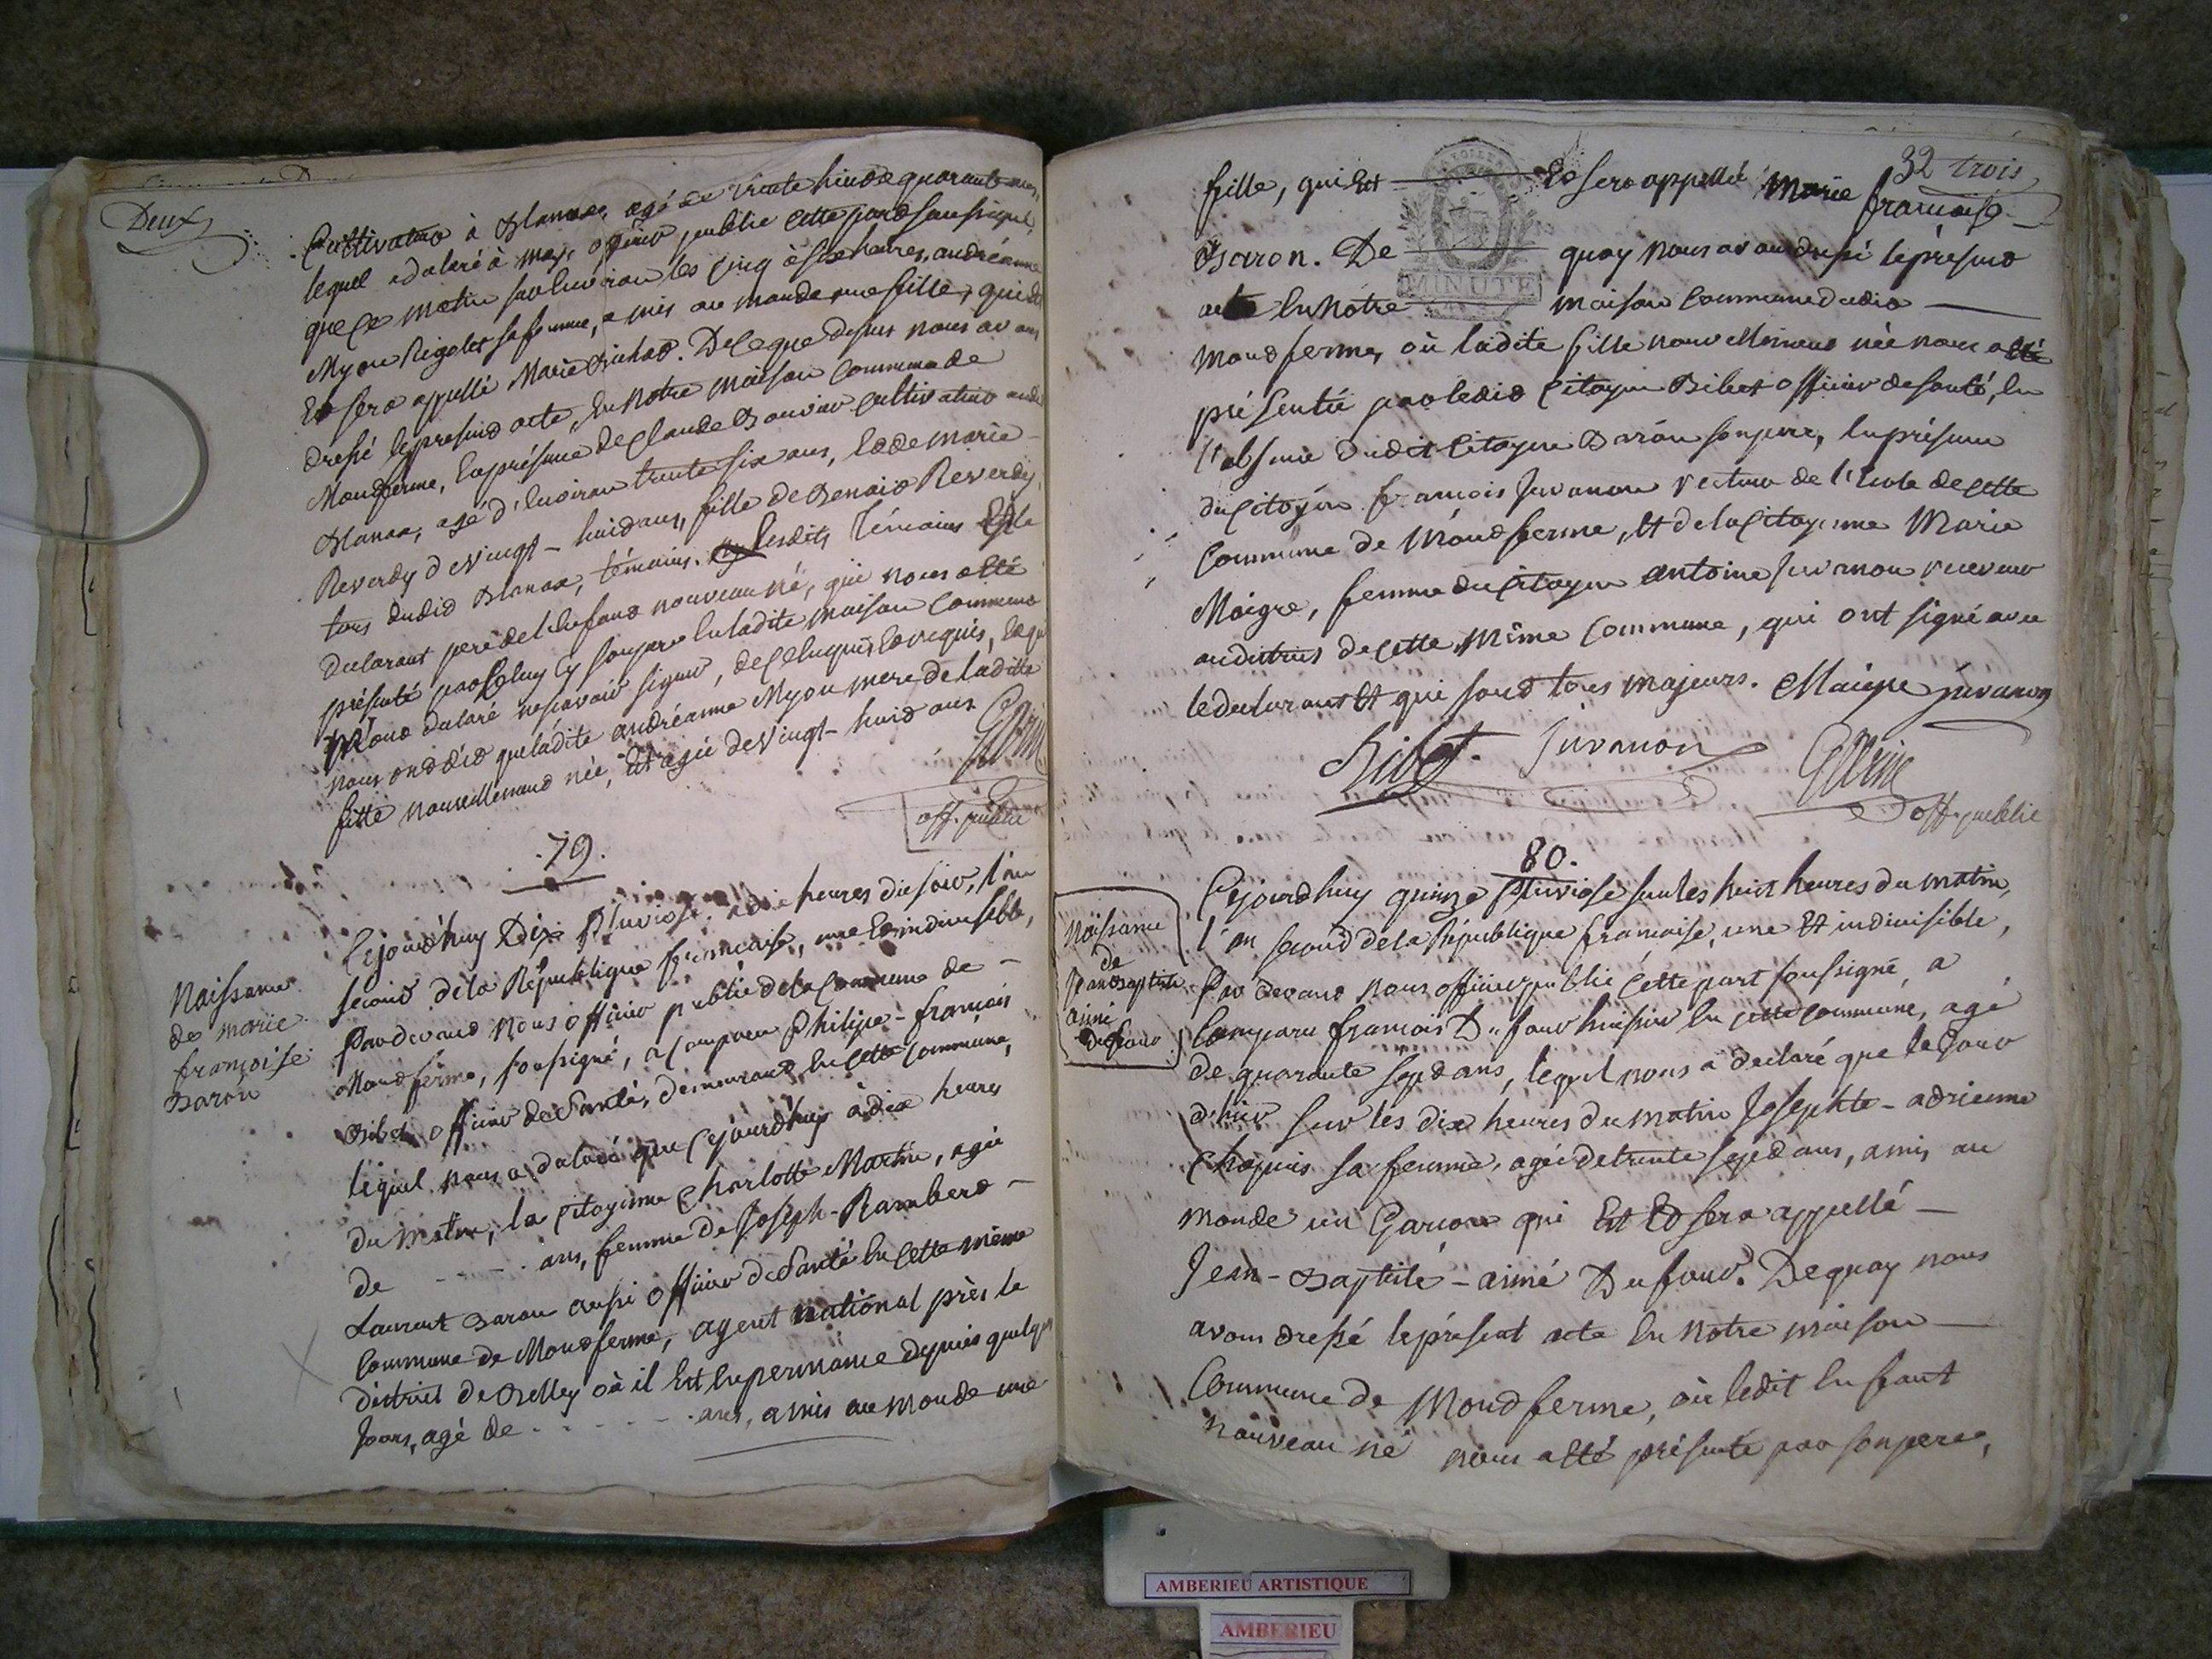 Deux
Cultivateur à Blanaz, agé de trente huit à quarante ans,
lequel a declaré à moy, officier public cette part soussigné,
que ce matin sur environ les cinq à six heures, andréanne
Myon Rigolet sa femme, a mis au monde une fille, qui est
Et sera appellé Marie. De ce que dessus nous avons
dressé le present acte, En Notre maison Commune de
Montferme, En présence de Claude Bouvier Cultivateur audit
Blanaz, agé d'Environ trente six ans, Et de marie
Reverdy de vingt-huit ans, fille de Benoit Reverdy,
tous dudit Blanaz, témoins. Lesdits Témoins Et le
declarant pere de l'Enfant nouveau né, qui nous a Eté
présenté par Celuy Cy son pere En ladite maison Commune
M'ont declaré ne scavoir signer, de Ce Enquis Et requis, Et qui
nous ont dit que ladite andréanne Myon mere de la ditte
fille nouvellement née, Est agée de vingt-huit ans
off. public
.79.
Naissance
de marie
françoise
Baron
Cejourd'huy Dix Pluviose, à dix heures du soir, l'an
second de la République française, une Et indivisible,
Pardevant Nous officier public de la Commune de -
Montferme, soussigné, a Comparu Philipe-françois
Bibet officier de Santé, demeurant En cette Commune,
lequel nous a declaré que Cejourd'huy à dix heures
du Matin, la Citoyenne Charlotte Martin, agée
de - - - ans, femme de Joseph-Rambert -
Laurent Baron aussi officier de Santé En Cette même
Commune de Montferme, agent national près le
district de Belley où il Est En permanence depuis quelques
Jours, agé de - - - - - ans, a mis au monde une
32 trois
fille, qui Est Et sera appellé Marie françoise
Baron. De quoy nous avons dressé le présent
acte En Notre maison Commune dudit
MINUTE
Montferme, où ladite fille nouvellement née nous a Eté
présentée par ledit Citoyen Bibet officier de santé, En
l'absence dudit Citoyen Baron son pere, En présence
du Citoyen françois Juvanon recteur de l'Ecole de cette
Commune de Montferme, Et de la Citoyenne Marie
Maigre, femme du Citoyen Antoine Juvanon receveur
au district de cette même Commune, qui ont signé avec
le declarant Et qui sont tous majeurs. Maigre juvanon
Bibet. Juvanon
off. public
80.
Naissance
de
Jean baptiste
aimé
Dufour
Cejourd'huy quinze Pluviose sur les huit heures du matin,
l'an second de la République française, une Et indivisible,
Par devant nous officier public Cette part soussigné, a
Comparu françois Dufour huissier En cette Commune, agé
de quarante sept ans, lequel nous a declaré que le Jour
d'hier sur les dix heures du matin Josephte-adrienne
Chapuis sa femme, agée de trente sept ans, a mis au
monde un Garçon qui Est Et sera appellé -
Jean-Baptiste-aimé Dufour. De quoy nous
avons dressé le présent acte En Notre maison
Commune de Montferme, où ledit Enfant
nouveau né nous a Eté présenté par son pere,
AMBERIEU ARTISTIQUE
AMBERIEU